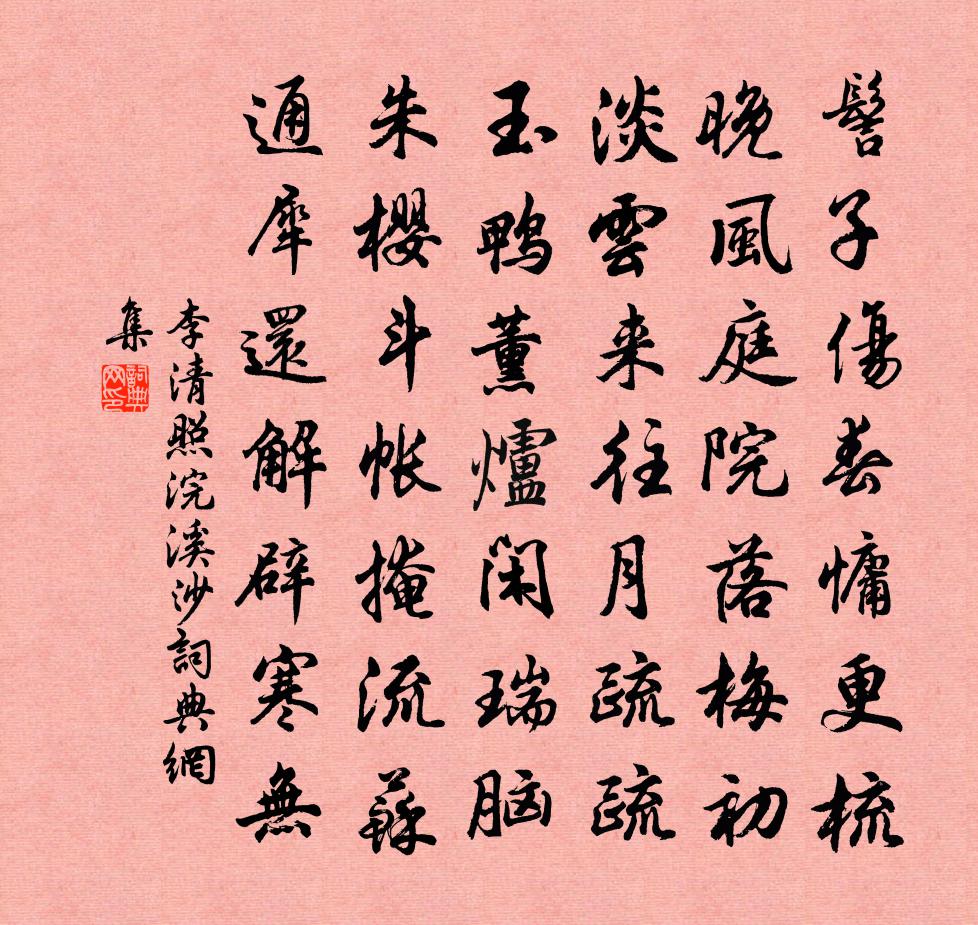 髻子傷春慵更梳
晚風庭院落梅初
淡雲来往月疏疏
玉鸭薰爐閑瑞脑
朱櫻斗帐掩流蘇
通犀還解辟寒無
李清照浣溪沙詞典網
集
詞典网印